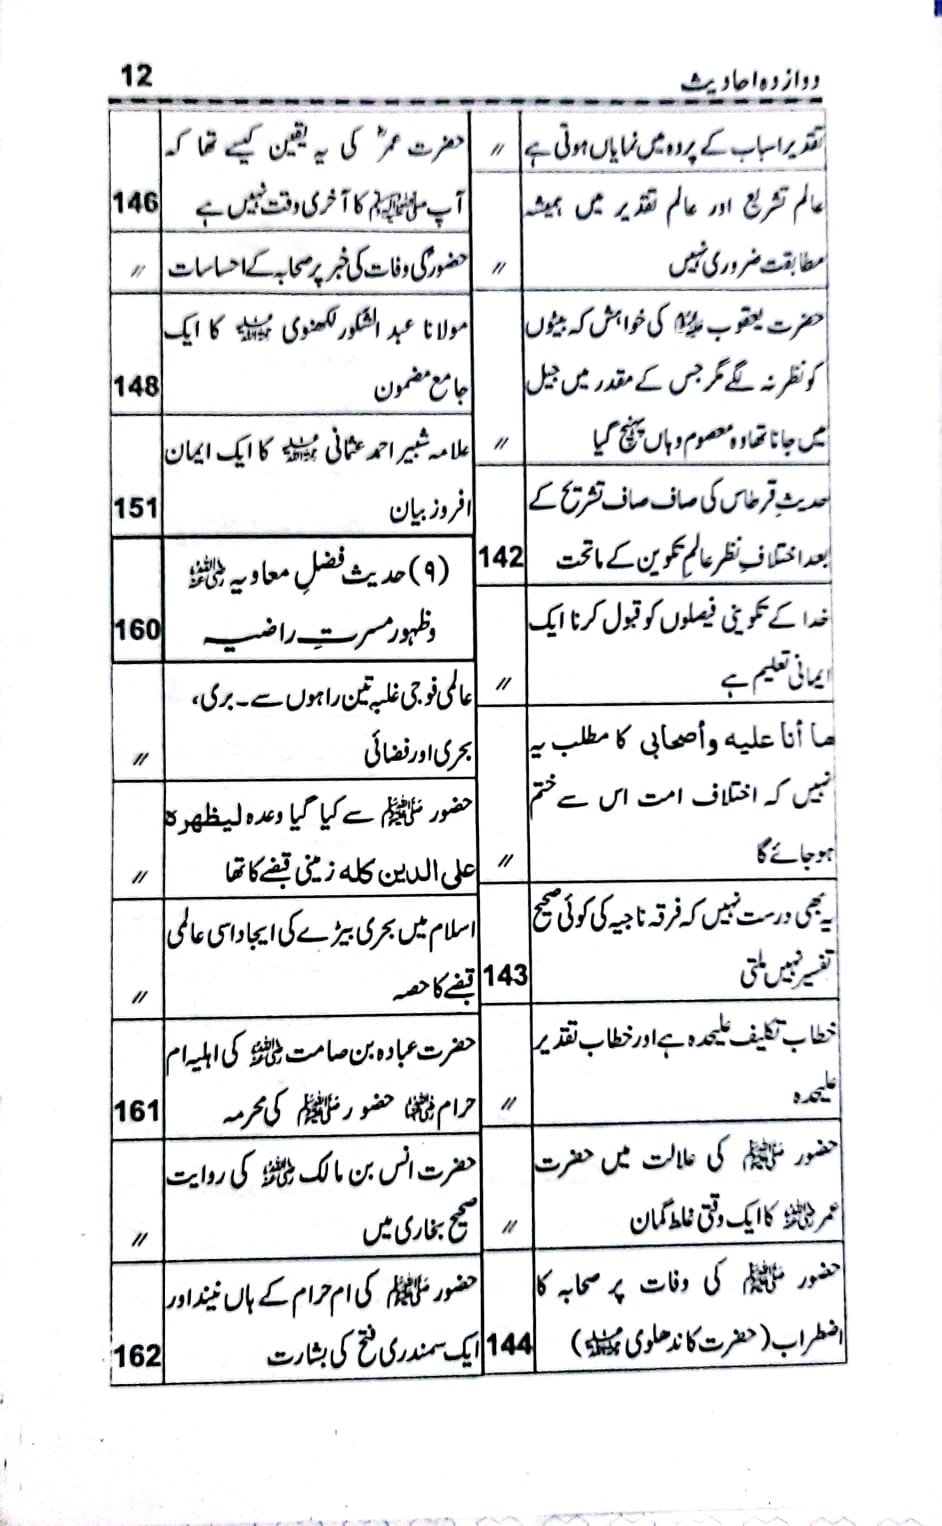 دوازدہ احادیث 12
تقدیر اسباب کے پردہ میں نمایاں ہوتی ہے 〃
عالم تشریع اور عالم تقدیر میں ہمیشہ
مطابقت ضروری نہیں 〃
حضرت یعقوب علیہ السلام کی خواہش کہ بیٹوں
کو نظر نہ لگے مگر جس کے مقدر میں جیل
میں جانا تھا وہ معصوم وہاں پہنچ گیا 〃
حدیثِ قرطاس کی صاف صاف تشریح کے
بعد اختلافِ نظر عالمِ تکوین کے ماتحت 142
خدا کے تکوینی فیصلوں کو قبول کرنا ایک
ایمانی تعلیم ہے 〃
ما أنا علیه وأصحابی کا مطلب یہ
نہیں کہ اختلاف امت اس سے ختم
ہو جائے گا 〃
یہ بھی درست نہیں کہ فرقہ ناجیہ کی کوئی صحیح
تفسیر نہیں ملتی 143
خطاب تکلیف علیحدہ ہے اور خطاب تقدیر
علیحدہ 〃
حضور ﷺ کی علالت میں حضرت
عمر رضی اللہ عنہ کا ایک وقتی غلط گمان 〃
حضور ﷺ کی وفات پر صحابہ کا
اضطراب (حضرت کاندھلوی رحمہ اللہ) 144
حضرت عمرؓ کی یہ یقین کیسے تھا کہ
آپ ﷺ کا آخری وقت نہیں ہے 146
حضورؐ کی وفات کی خبر پر صحابہ کے احساسات 〃
مولانا عبد الشکور لکھنوی رحمہ اللہ کا ایک
جامع مضمون 148
علامہ شبیر احمد عثمانی رحمہ اللہ کا ایک ایمان
افروز بیان 151
(۹) حدیث فضلِ معاویہ رضی اللہ عنہ
وظہور مسرتِ راضیہ 160
عالمی فوجی غلبہ تین راہوں سے۔ بری،
بحری اور فضائی 〃
حضور ﷺ سے کیا گیا وعدہ لیظهره
علی الدین کله زمینی قبضے کا تھا 〃
اسلام میں بحری بیڑے کی ایجاد اسی عالمی
قبضے کا حصہ 〃
حضرت عبادہ بن صامت رضی اللہ عنہ کی اہلیہ ام
حرام رضی اللہ عنہا حضور ﷺ کی محرمہ 161
حضرت انس بن مالک رضی اللہ عنہ کی روایت
صحیح بخاری میں 〃
حضور ﷺ کی ام حرام کے ہاں نیند اور
ایک سمندری فتح کی بشارت 162